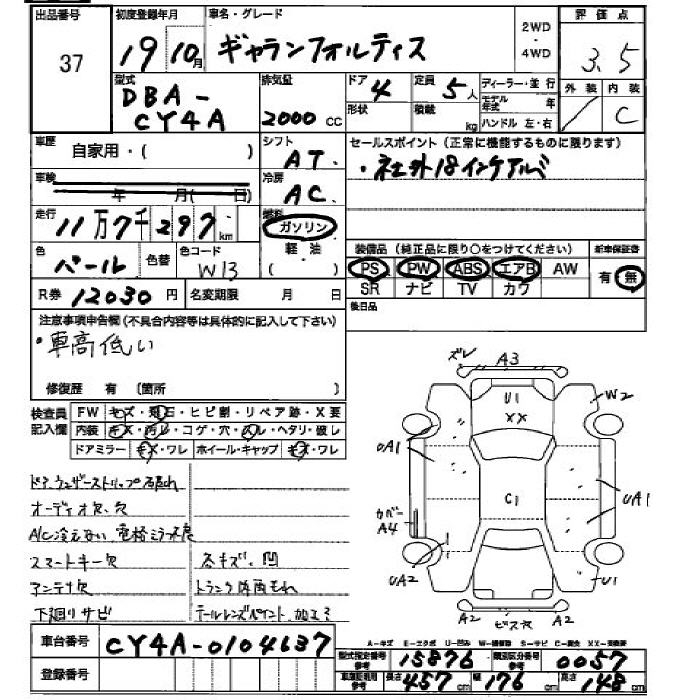 出品番号 初度登録年月 車名・グレード 2WD・4WD 評価点
37 19 10月 ギャランフォルティス 3.5
型式 排気量 ドア 4 定員 5人 ディーラー・並行 外装 内装
DBA-CY4A 2000cc 形状 積載 kg モデル年式 年 C
ハンドル 左・右
車歴 自家用・( ) シフト AT. セールスポイント(正常に機能するものに限ります)
・社外18インチアルミ
車検 年 月( 日) 冷房 AC.
走行 11万7千297km 燃料 ガソリン 軽・油 ( )
装備品(純正品に限り○をつけてください) 新車保証書
色 パール 色替 色コード W13
PS PW ABS エアB AW 有・無
SR ナビ TV カワ
R券 12030円 名変期限 月 日 後日品
注意事項申告欄(不具合内容等は具体的に記入して下さい)
・車高低い
修復歴 有 (箇所 )
検査員記入欄 FW キズ・飛石・ヒビ割・リペア跡・X要
内装 キズ・汚レ・コゲ・穴・スレ・ヘタリ・破レ
ドアミラー キズ・ワレ ホイール・キャップ キズ・ワレ
ズレ A3
U1 W2
XX
UA1
C1 UA1
カバー
A4
UA2 U1
A2 ビス穴 A2
ドアウェザーストリップ破れ
オーディオ欠、穴
A/C冷えない、電格ミラー不良
スマートキー欠 各キズ、凹
アンテナ欠 トランク
下廻りサビ テールレンズペイント、加工
A-キズ E-エクボ U-凹み W-補修跡 S-サビ C-腐食 XX-交換済
車台番号 CY4A-0104637
型式指定番号 参考 15876 類別区分番号 参考 0057
登録番号 車庫証明用 参考 長さ 457cm 幅 176cm 高さ 148cm